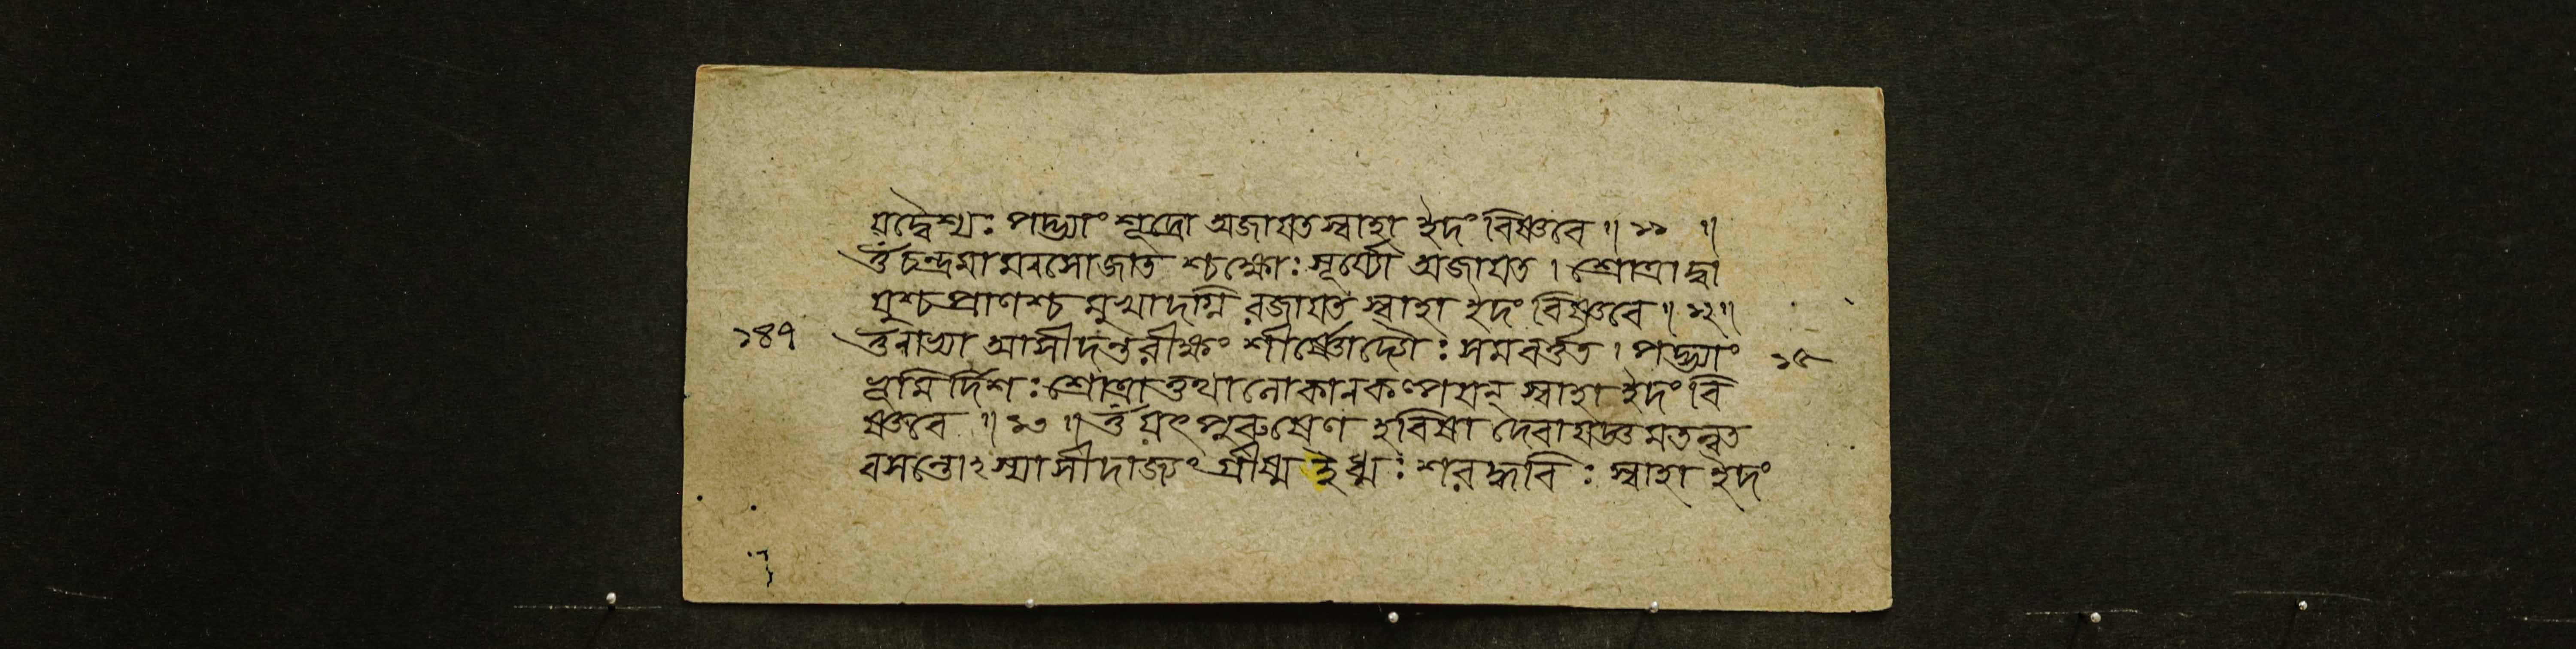 যদ্বৈশ্যঃ পদ্ভ্যাং শূদ্রো অজায়ত স্বাহা ইদং বিষ্ণবে ॥ ১১ ॥
ওঁ চন্দ্রমা মনসো জাত শ্চক্ষোঃ সূর্য্যো অজায়ত । শ্রোত্রাদ্বা
যুশ্চ প্রাণশ্চ মুখাদগ্নি রজায়ত স্বাহা ইদং বিষ্ণবে ॥ ১২ ॥
১৪৭ ওঁ নাভ্যা আসীদন্তরীক্ষং শীর্ষ্ণো দ্যৌঃ সমবর্ত্তত । পদ্ভ্যাং ১৫
ভূমি র্দিশঃ শ্রোত্রা ত্তথা লোকানকল্পয়ন্ স্বাহা ইদং বি
ষ্ণবে ॥ ১৩ ॥ ওঁ যৎ পুরুষেণ হবিষা দেবা যজ্ঞমতন্বত
বসন্তোঽস্যাসীদাজ্যং গ্রীষ্ম ইধ্মঃ শরদ্ধবিঃ স্বাহা ইদং